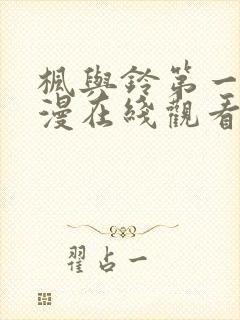 楓與鈴第一
漫在綫觀看
翟占一